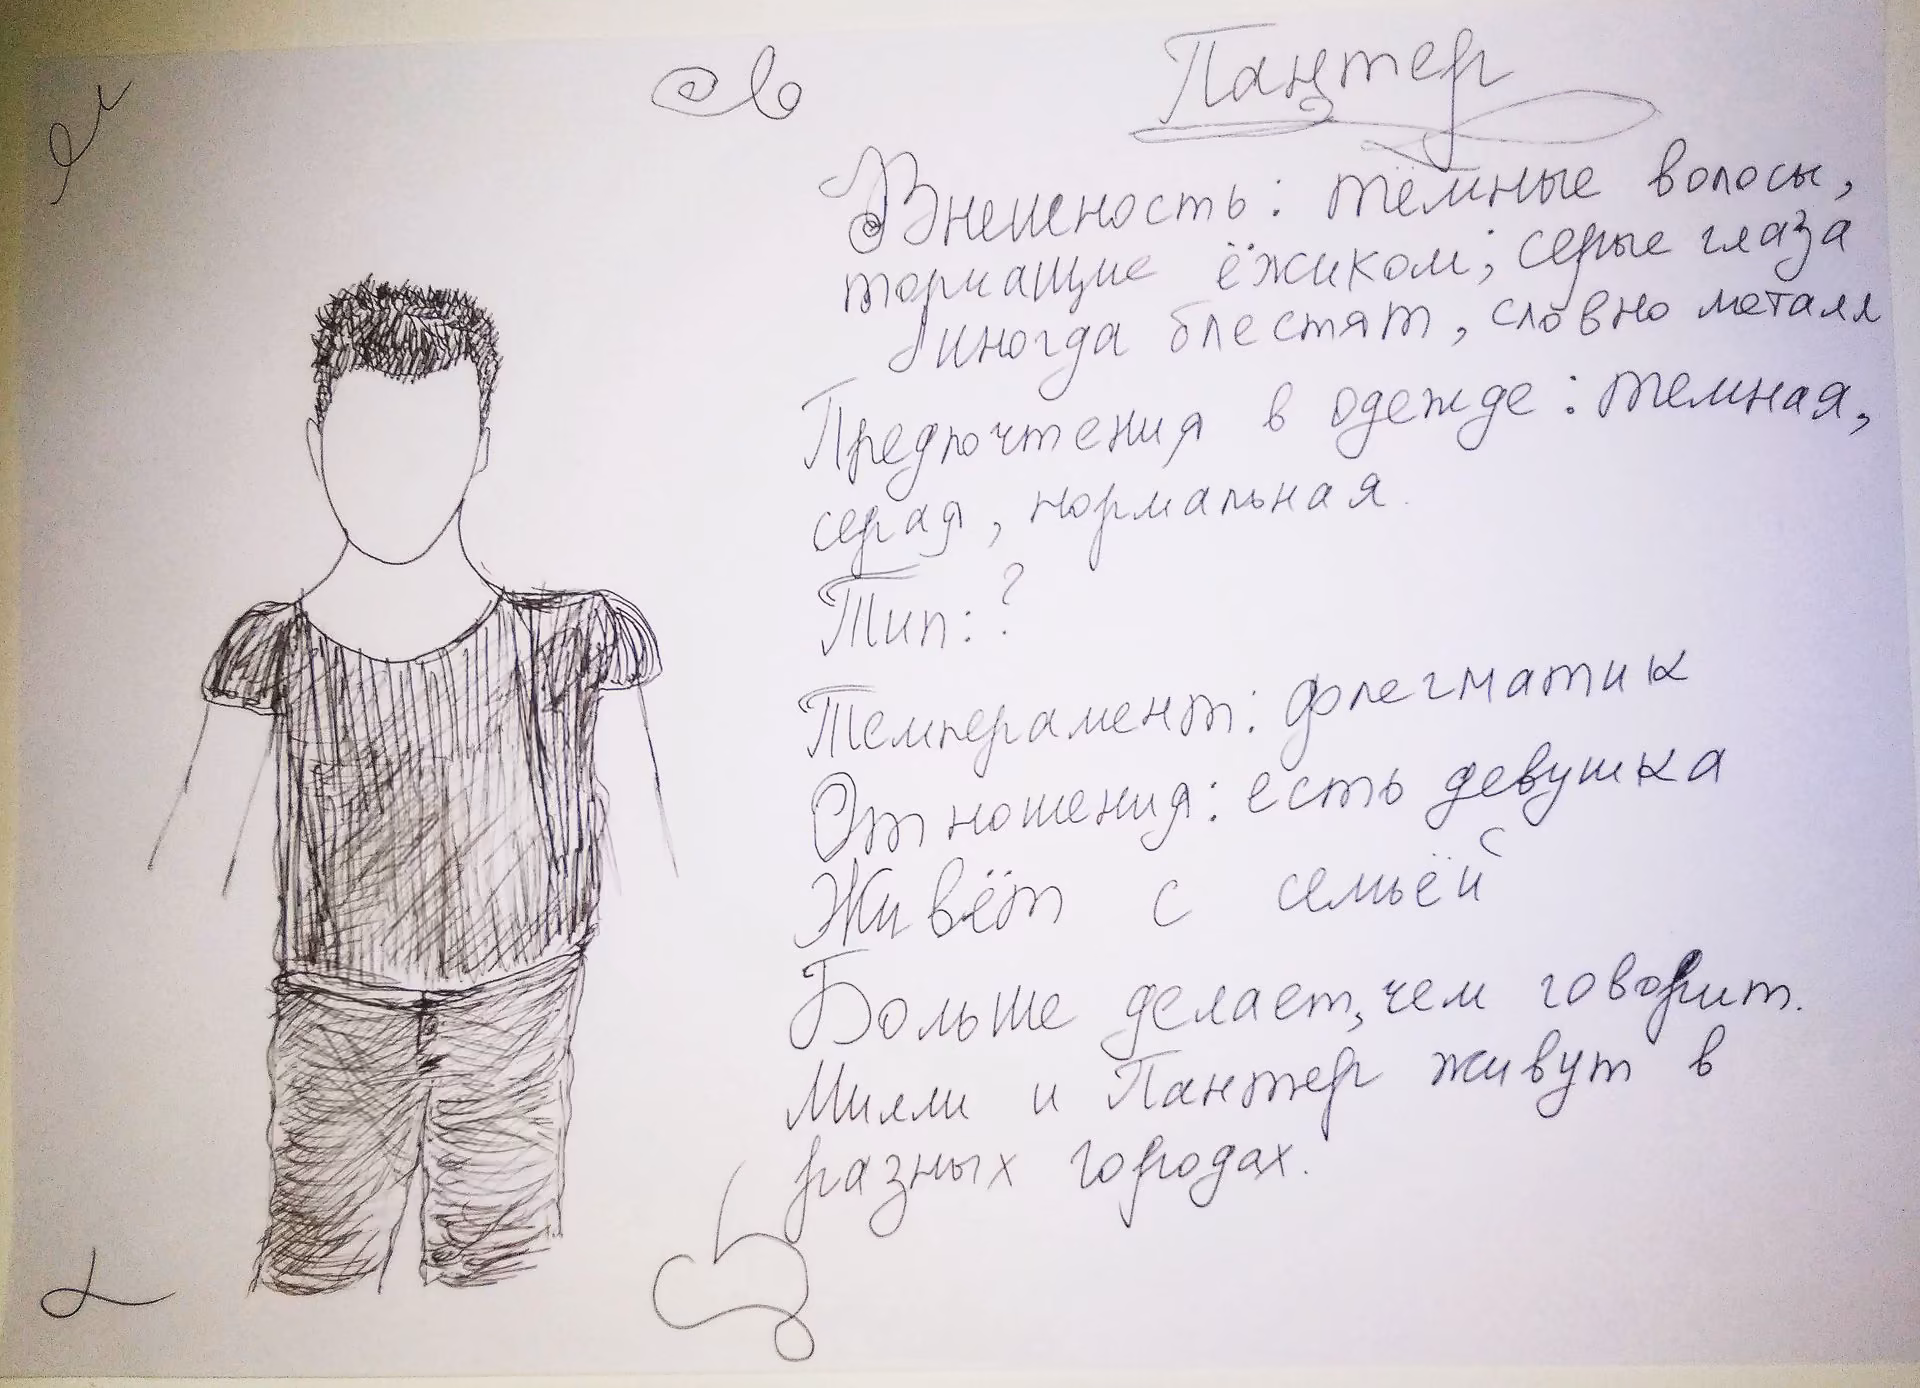 Пантер
Внешность: тёмные волосы,
торчащие ёжиком; серые глаза
иногда блестят, словно металл
Предпочтения в одежде: темная,
серая, нормальная.
Тип: ?
Темперамент: флегматик
Отношения: есть девушка
Живёт с семьёй
Больше делает, чем говорит.
Милли и Пантер живут в
разных городах.